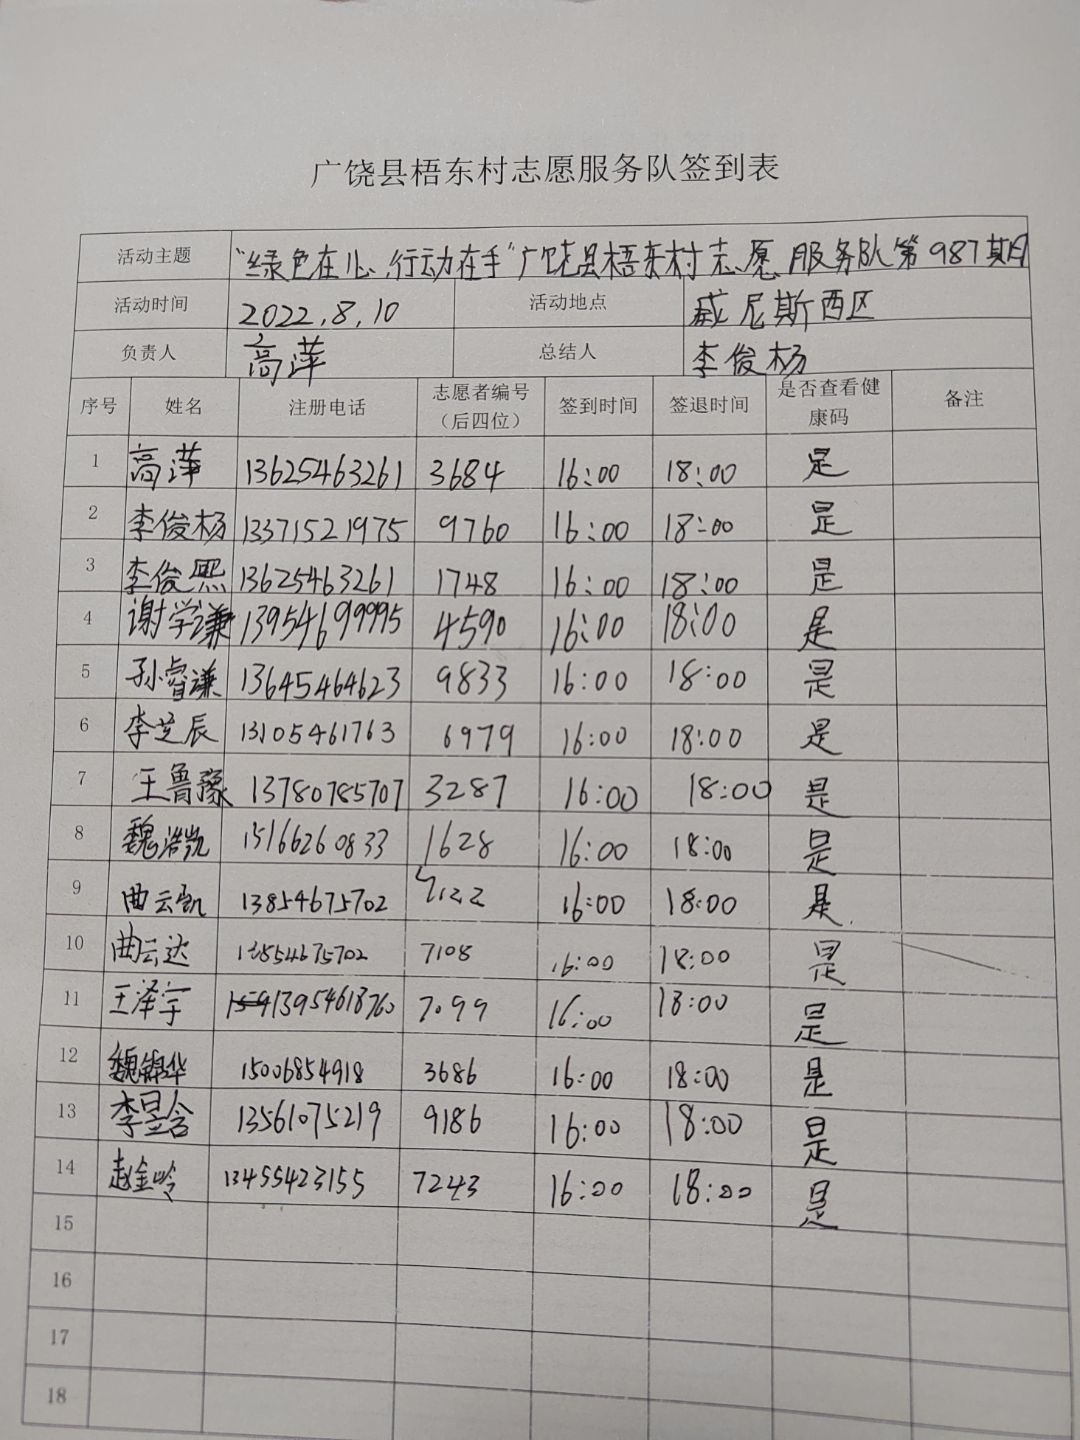 广饶县梧东村志愿服务队签到表
活动主题 “绿色在心、行动在手”广饶县梧东村志愿服务队第987期
活动时间 2022.8.10 活动地点 威尼斯西区
负责人 高萍 总结人 李俊杨
序号 姓名 注册电话 志愿者编号（后四位） 签到时间 签退时间 是否查看健康码 备注
1 高萍 13625463261 3684 16:00 18:00 是
2 李俊杨 13371521975 9760 16:00 18:00 是
3 李俊熙 13625463261 1748 16:00 18:00 是
4 谢学谦 13954699995 4590 16:00 18:00 是
5 孙睿谦 13645464623 9833 16:00 18:00 是
6 李芝辰 13105461763 6979 16:00 18:00 是
7 王鲁豫 13780785707 3287 16:00 18:00 是
8 魏浩凯 15166260833 1628 16:00 18:00 是
9 曲云凯 13854675702 16:00 18:00 是
10 曲云达 13854675702 7108 16:00 18:00 是
11 王泽宇 13954618760 7099 16:00 18:00 是
12 魏锦华 15006854918 3686 16:00 18:00 是
13 李昱含 13561075219 9186 16:00 18:00 是
14 赵金岭 13455423155 7243 16:00 18:00 是
15
16
17
18